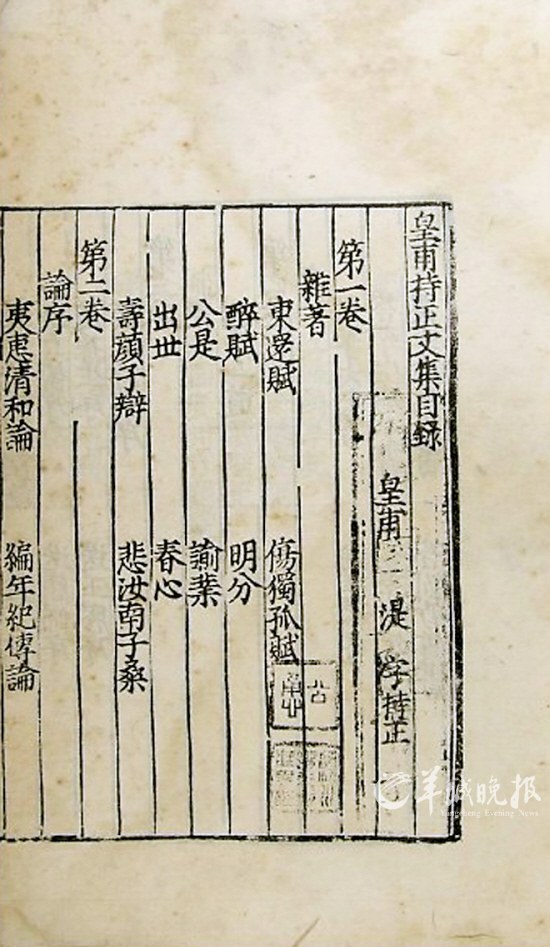 皇甫持正文集目録
皇甫 湜 字持正
第一卷
雜著
東還賦 傷獨孤賦
醉賦 明分
公是 諭業
出世 春心
壽顔子辯 悲汝南子桑
第二卷
論序
夷惠清和論 編年紀傳論
羊城晚报
Yangcheng Evening News